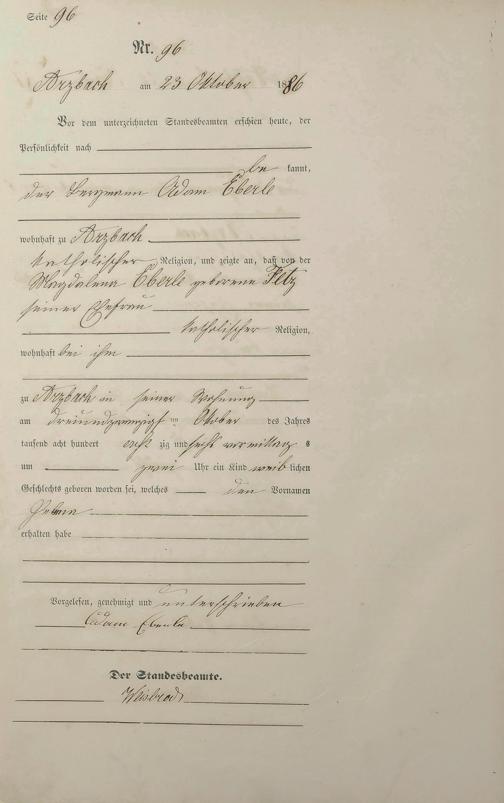 Seite 96
Nr. 96
Arzbach am 23 Oktober 1886
Vor dem unterzeichneten Standesbeamten erschien heute, der
Persönlichkeit nach
be kannt,
der Bergmann Adam Eberle
wohnhaft zu Arzbach
katholischer Religion, und zeigte an, daß von der
Magdalena Eberle geborene Fetz
seiner Ehefrau
katholischer Religion,
wohnhaft bei ihm
zu Arzbach in seiner Wohnung
am dreiundzwanzigsten Oktober des Jahres
tausend acht hundert acht zig und sechs vormittag s
um zwei Uhr ein Kind weib lichen
Geschlechts geboren worden sei, welches den Vornamen
erhalten habe
Vorgelesen, genehmigt und unterschrieben
Adam Eberle
Der Standesbeamte.
Weisbrod